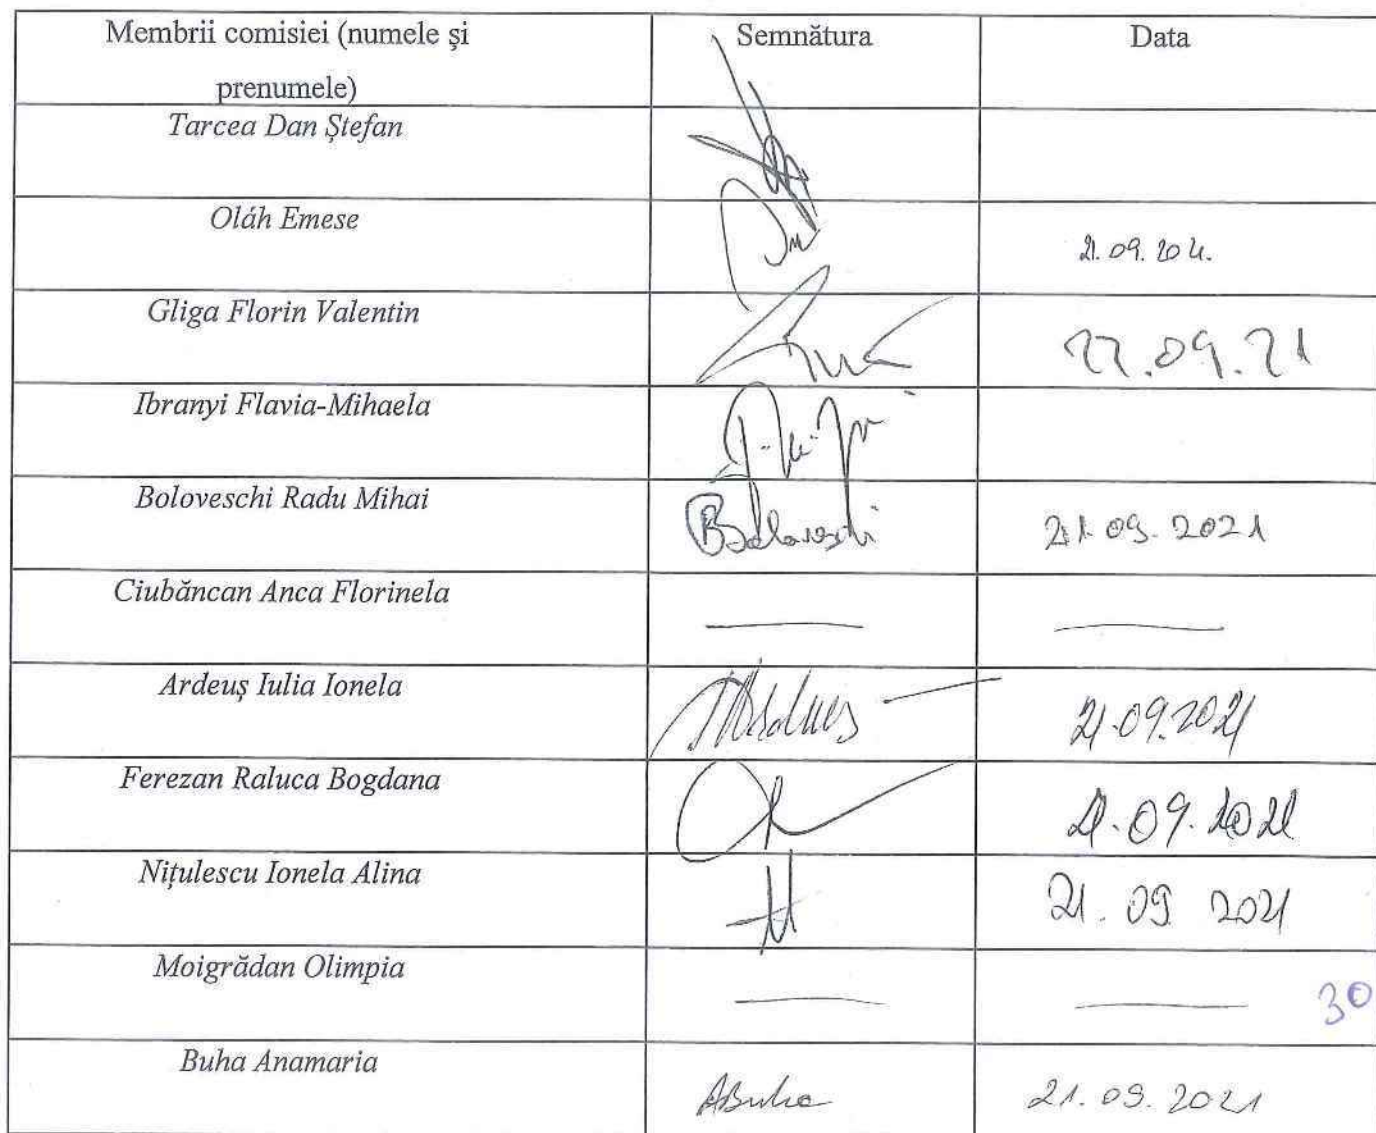 Membrii comisiei (numele și Semnătura Data
prenumele)
Tarcea Dan Ștefan
Oláh Emese
Gliga Florin Valentin .09.21
Ibranyi Flavia-Mihaela
Boloveschi Radu Mihai 21.09.2021
Ciubăncan Anca Florinela
Ardeuș Iulia Ionela 21.09.2021
Ferezan Raluca Bogdana 21.09.2021
Nițulescu Ionela Alina 21.09 2021
Moigrădan Olimpia 30
Buha Anamaria ABuha 21.09.2021